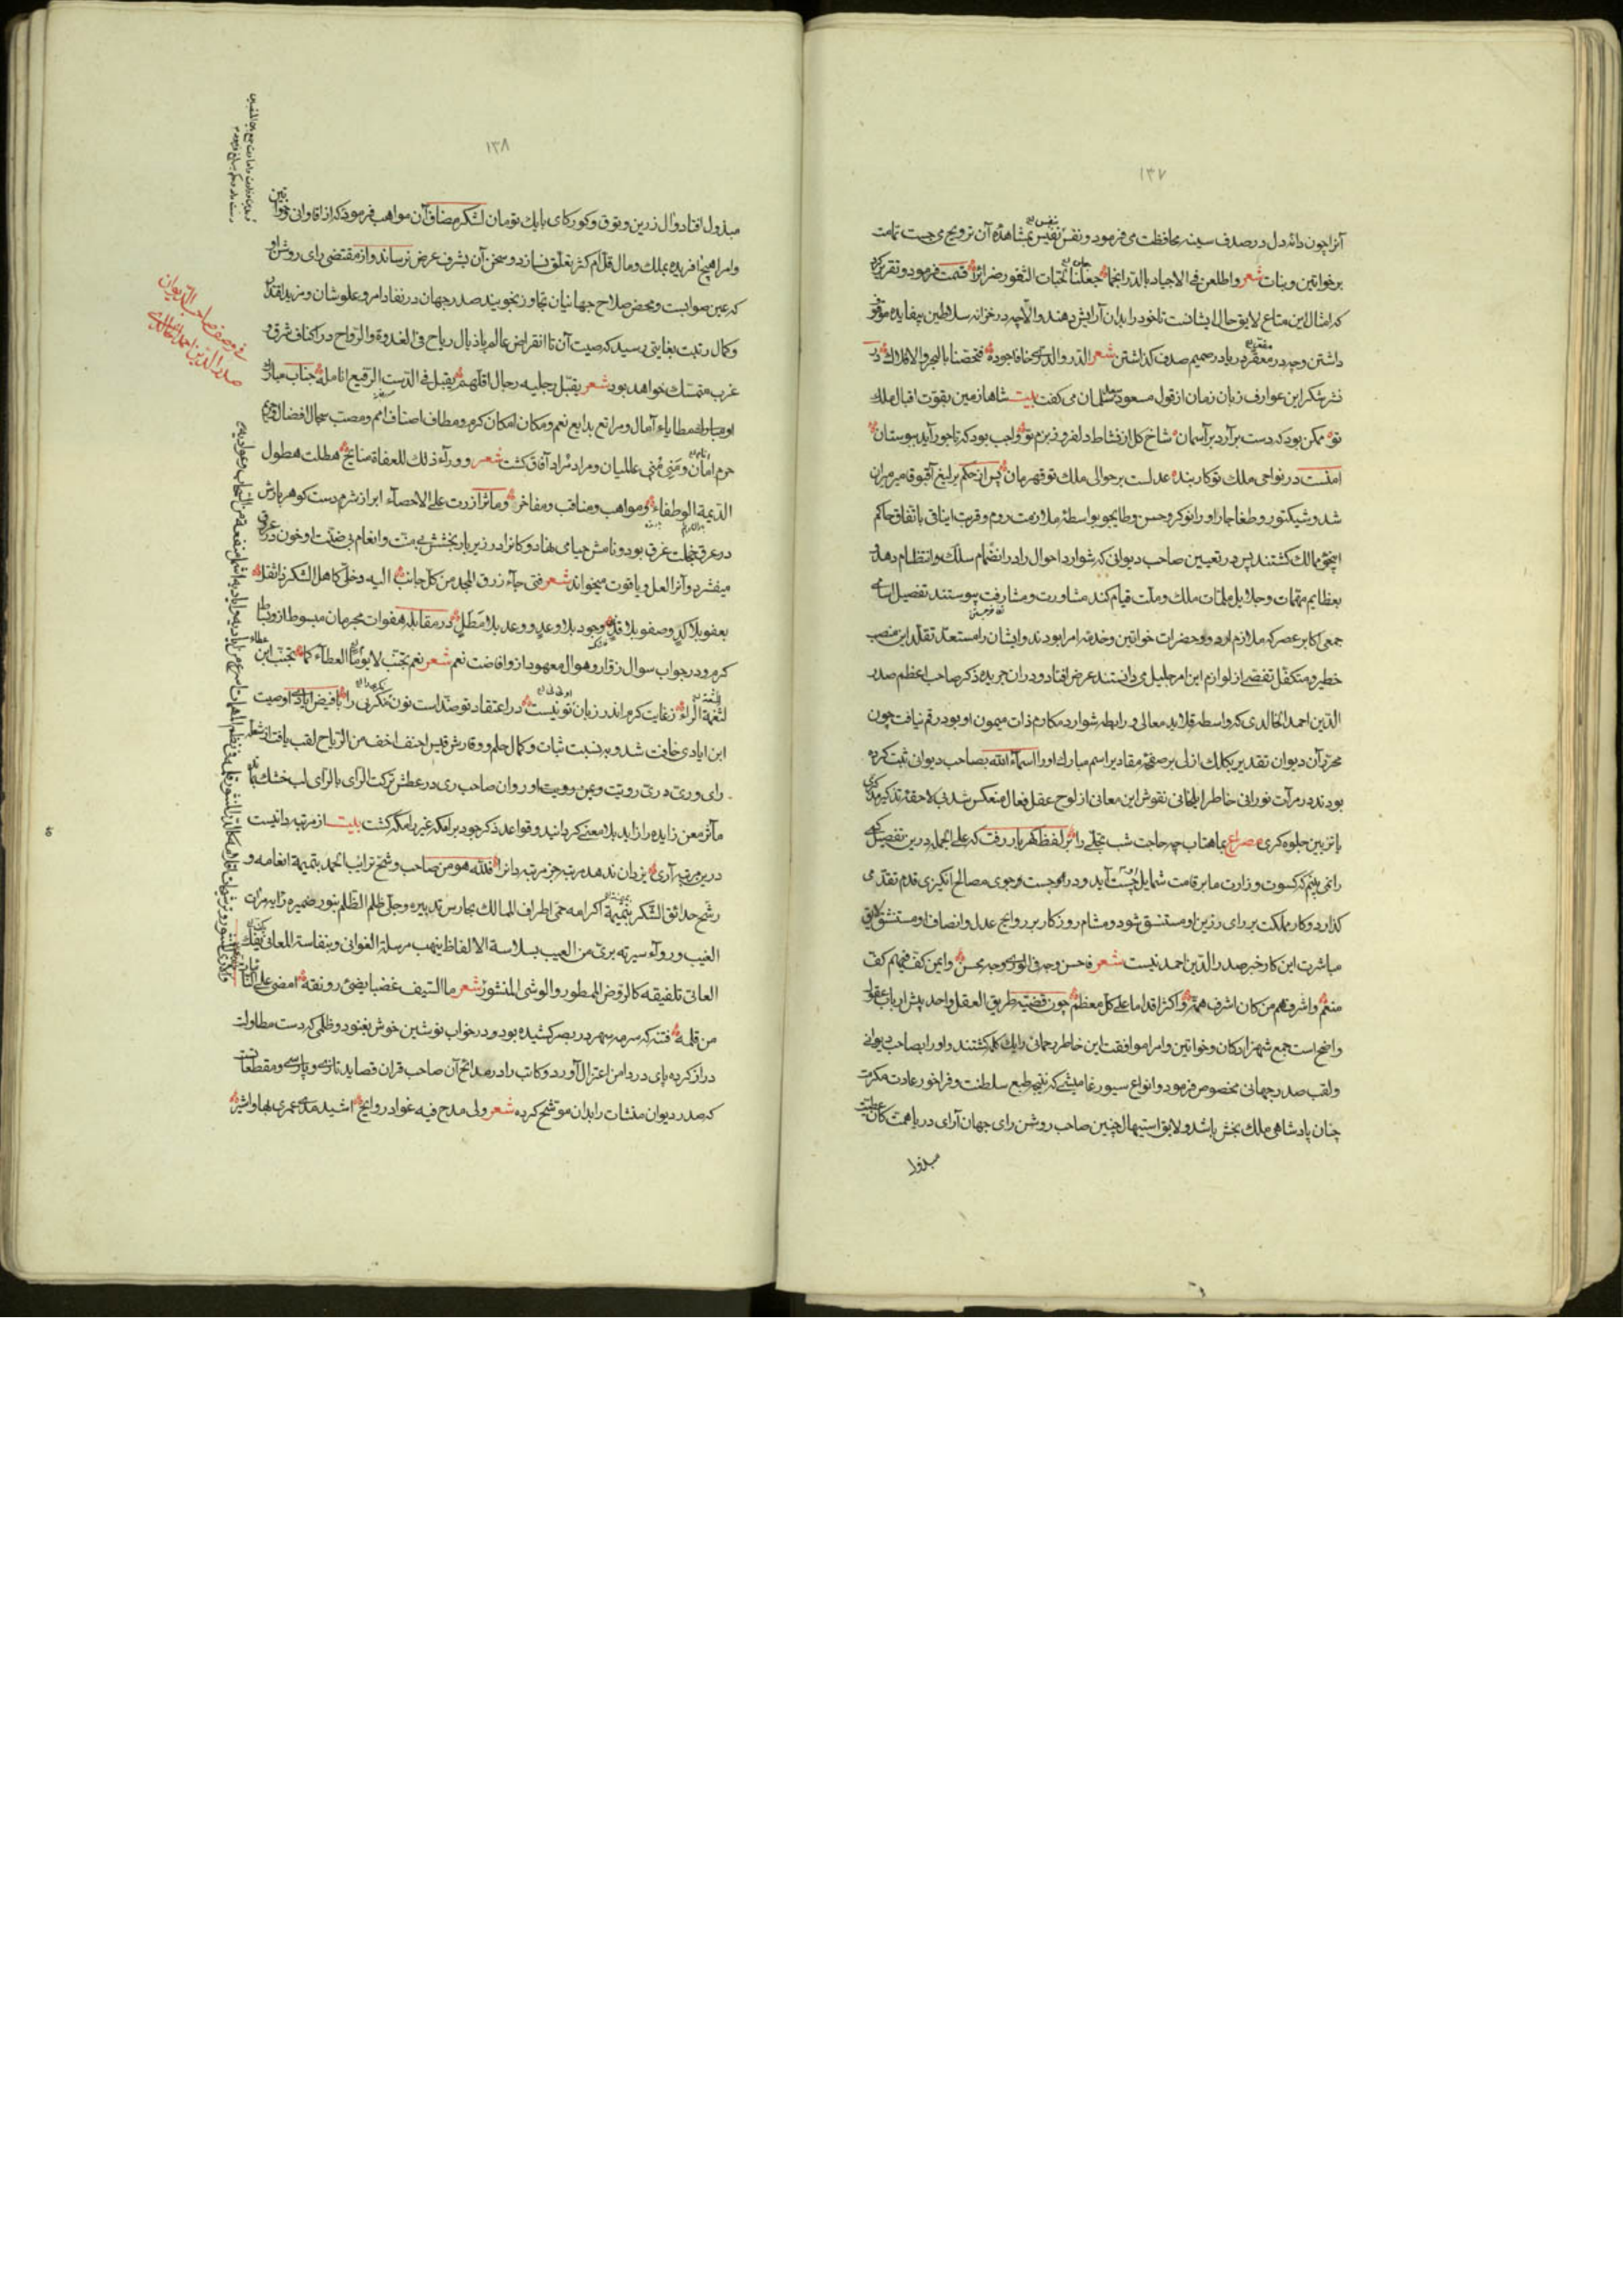 ۱۳۷
آنرا چون دانهٔ دل در صدف سینه محافظت می فرمود و نفس نفیس بمشاهدهٔ آن ترویح می جست تمامت
بر خواتین و بنات شعر واطلعن فی الاجیاد بالدر انجما جعلنا لحبات الثغور ضرائرا قسمت فرمود و تقریر کرد
که امثال این متاع لایق حال ایشانست تا خود را بدان آرایش دهند و الا چه در خزانه سلاطین بیفایده موقوف
داشتن و چه در مقعر دریا در صمیم صدف گذاشتن شعر الدر والدری خافا جوده فتحصنا بالبحر والافلاک در
نثر شکر این عوارف زبان زمان از قول مسعود سعد سلمان می گفت بیت شاها زمین بقوت اقبال ملک
تو ممکن بود که دست برآرد بر آسمان شاخ گل از نشاط دلفروز بزم تو واجب بود که تاجور آید ببوستان
امنست در نواحی ملک تو کاربند عدلست بر حوالی ملک تو قهرمان پس از حکم یرلیغ آقبوقا میر میران
شد و شیکتور و طغاجار او را نوکر و حسن و طایجو بواسطهٔ ملازمت روم و قربت ایناقی باتفاق حاکم
اینجوی ممالک گشتند پس در تعیین صاحب دیوانی که شوارد احوال را در انضمام سلک و انتظام دهد و
بعظایم مهمات و جلایل ملمات ملک و ملت قیام کند مشاورت و مشارفت پیوستند تفصیل اسامی
جمعی اکابر عصر که ملازم اردو و حضرات خواتین و خدمت امرا بودند و ایشان را مستعد تقلد این منصب
خطیر و متکفل تفصی از لوازم این امر جلیل می دانستند عرض افتاد و در آن جریده ذکر صاحب اعظم صدر
الدین احمد الخالدی که واسطه قلاید معالی و رابطه شوارد مکارم ذات میمون او بود رقم نیافت چون
محرران دیوان تقدیر بکلک ازلی بر صفحهٔ مقادیر اسم مبارک او را اسماء الله بصاحب دیوانی ثبت کرده
بودند در مرآت نورانی خاطر ایلخانی نقوش این معانی از لوح عقل فعال منعکس شد
با تزیین جلوه گری مصراع بماهتاب چه حاجت شب تجلی را بر لفظ گهربار رفت که علی الجمله درین تفصیل کسی
را نمی بینم که کسوت وزارت ما بر قامت شمایل او چست آید و در راه جست و جوی مصالح انگیزی قدم تقدم می
گذارد و کار مملکت برای رزین او مستنسق شود و مشام روزگار بر روایح عدل و انصاف او مستنشق لایق
مباشرت این کار خبر صدر الدین احمد نیست شعر فاحسن وجه فی الوری وجه محسن وایمن کف فیهم کف
منعم واشرفهم من کان اشرف همة واکثر اقداما علی کل معظم چون قضیه طریق العقل واحد پیش ارباب عقول
واضح است جمع شهزادگان و خواتین و امرا موافقت این خاطر رحمانی را یک کلمه گشتند و او را بصاحب دیوانی
و لقب صدر جهانی مخصوص فرمود و انواع سیورغامیشی که نتیجه طبع سلطنت و فراخور عادت مکرمت
چنان پادشاهی ملک بخش باشد و لایق استیهال چنین صاحب روشن رای جهان آرای دریا همت کان عطیت
مبذول
۱۳۸
مبذول افتاد و آل زرین و توق و کورکای با یک تومان لشکر مضاف آن مواهب فرمود که از اقاوان و خواتین
و امرا هیچ افریده بملک و مال قل ام کثر تعلق نسازد و سخن آن بشرف عرض نرساند و از مقتضی رای روشن او
که عین صوابست و محض صلاح جهانیان تجاوز نجویند صدر جهان در نفاذ امر و علو شان و مزید اقتدار
و کمال رتبت بغایتی رسید که صیت آن تا انقراض عالم باذیال ریاح فی الغدوة والرواح در اکناف شرق و
غرب متمسک خواهد بود شعر یقبل رجلیه رجال اقلهم یقبل فی الدست الرفیع انامله جناب مبارک
او مناخ مطایاء آمال و مراتع بدایع نعم و مکان امکان کرم و مطاف اصناف امم و مصب سجال افضال و
حرم امان و منی منی عالمیان و مراد مراد آفاق گشت شعر و ورآء ذلک للعفاة منایح هطلت هطول
الدیمة الوطفاء و مواهب و مناقب و مفاخر و ماثر ازرت علی الاحصآء ابر از شرم دست گوهر بارش
در عرق خجلت غرق بود و نامش حیا می نهاد و کان را در زیر بار بخشش بی منت و انعام بی ضنت او خون در عرق
میفشرد و آنرا لعل و یاقوت میخواند شعر فتی جآء رزق المجد من کل جانب الیه و خلی کاهل الشکر ذا ثقل
بعفو بلا کد و صفو بلا قذی وجود بلا وعد و وعد بلا مطل در مقابله هفوات مجرمان مبسوط از وی بساط
کرم و در جواب سوال زوار و هوال معهود از و افاضت نعم شعر نعم تجنب لا یوم العطآء کما تجنب ابن
لثغة الراء زغایت کرم اندر زبان تو نیست در اعتقاد تو ضد است نون مگر بی را بافیض ایادی او صیت
ابن ایادی خافت شد و به نسبت ثبات و کمال حلم و وقارش قیس احنف اخف من الریاح لقب یافت از شعله
رای وری دری رویت و یمن رویت او روان صاحب ری در عطش ترکت الرای بالرای لب خشک بماند
ماثر معن زایده را زاید بلا معنی گردانید و قواعد ذکر جود برامکه غیر رامکه گشت بیت از مرتبه دانیست
درین مرتبه آری یزدان ندهد مرتبه جز مرتبه دان را فلله هو من صاحب وشح ترایب الحمد بتمیمة انعامه و
رشح حدائق الشکر بنمیمة اکرامه حمی اطراف الممالک بحارس تدبیره وجلی ظلم الظلم بنور ضمیره رایه مرآت
الغیب و روآء سیرته بری من العیب بسلاسة الالفاظ ینهب مرسلة الغوانی و بنفاسة المعانی یفک
العانی تلفیقه کالروض الممطور والوشی المنشور شعر ما السیف غضبا یضیٔ رونقه امضی علی النائبات
من قلمه فتنه که سرمه سهر در بصر کشیده بود در خواب نوشین خوش بغنود و ظلمی که دست مطاولت
دراز کرده پای در دامن اعتزال آورد و کاتب را در مدائح آن صاحب قران قصاید تازی و پارسی و مقطعات
که صدر دیوان منشات را بدان موشح کرده شعر ولی مدح فیه غواد روایح اشید مدی عمری بها واشیر
فی وصف صاحب الدیوان
صدر الدین احمد الخالدی